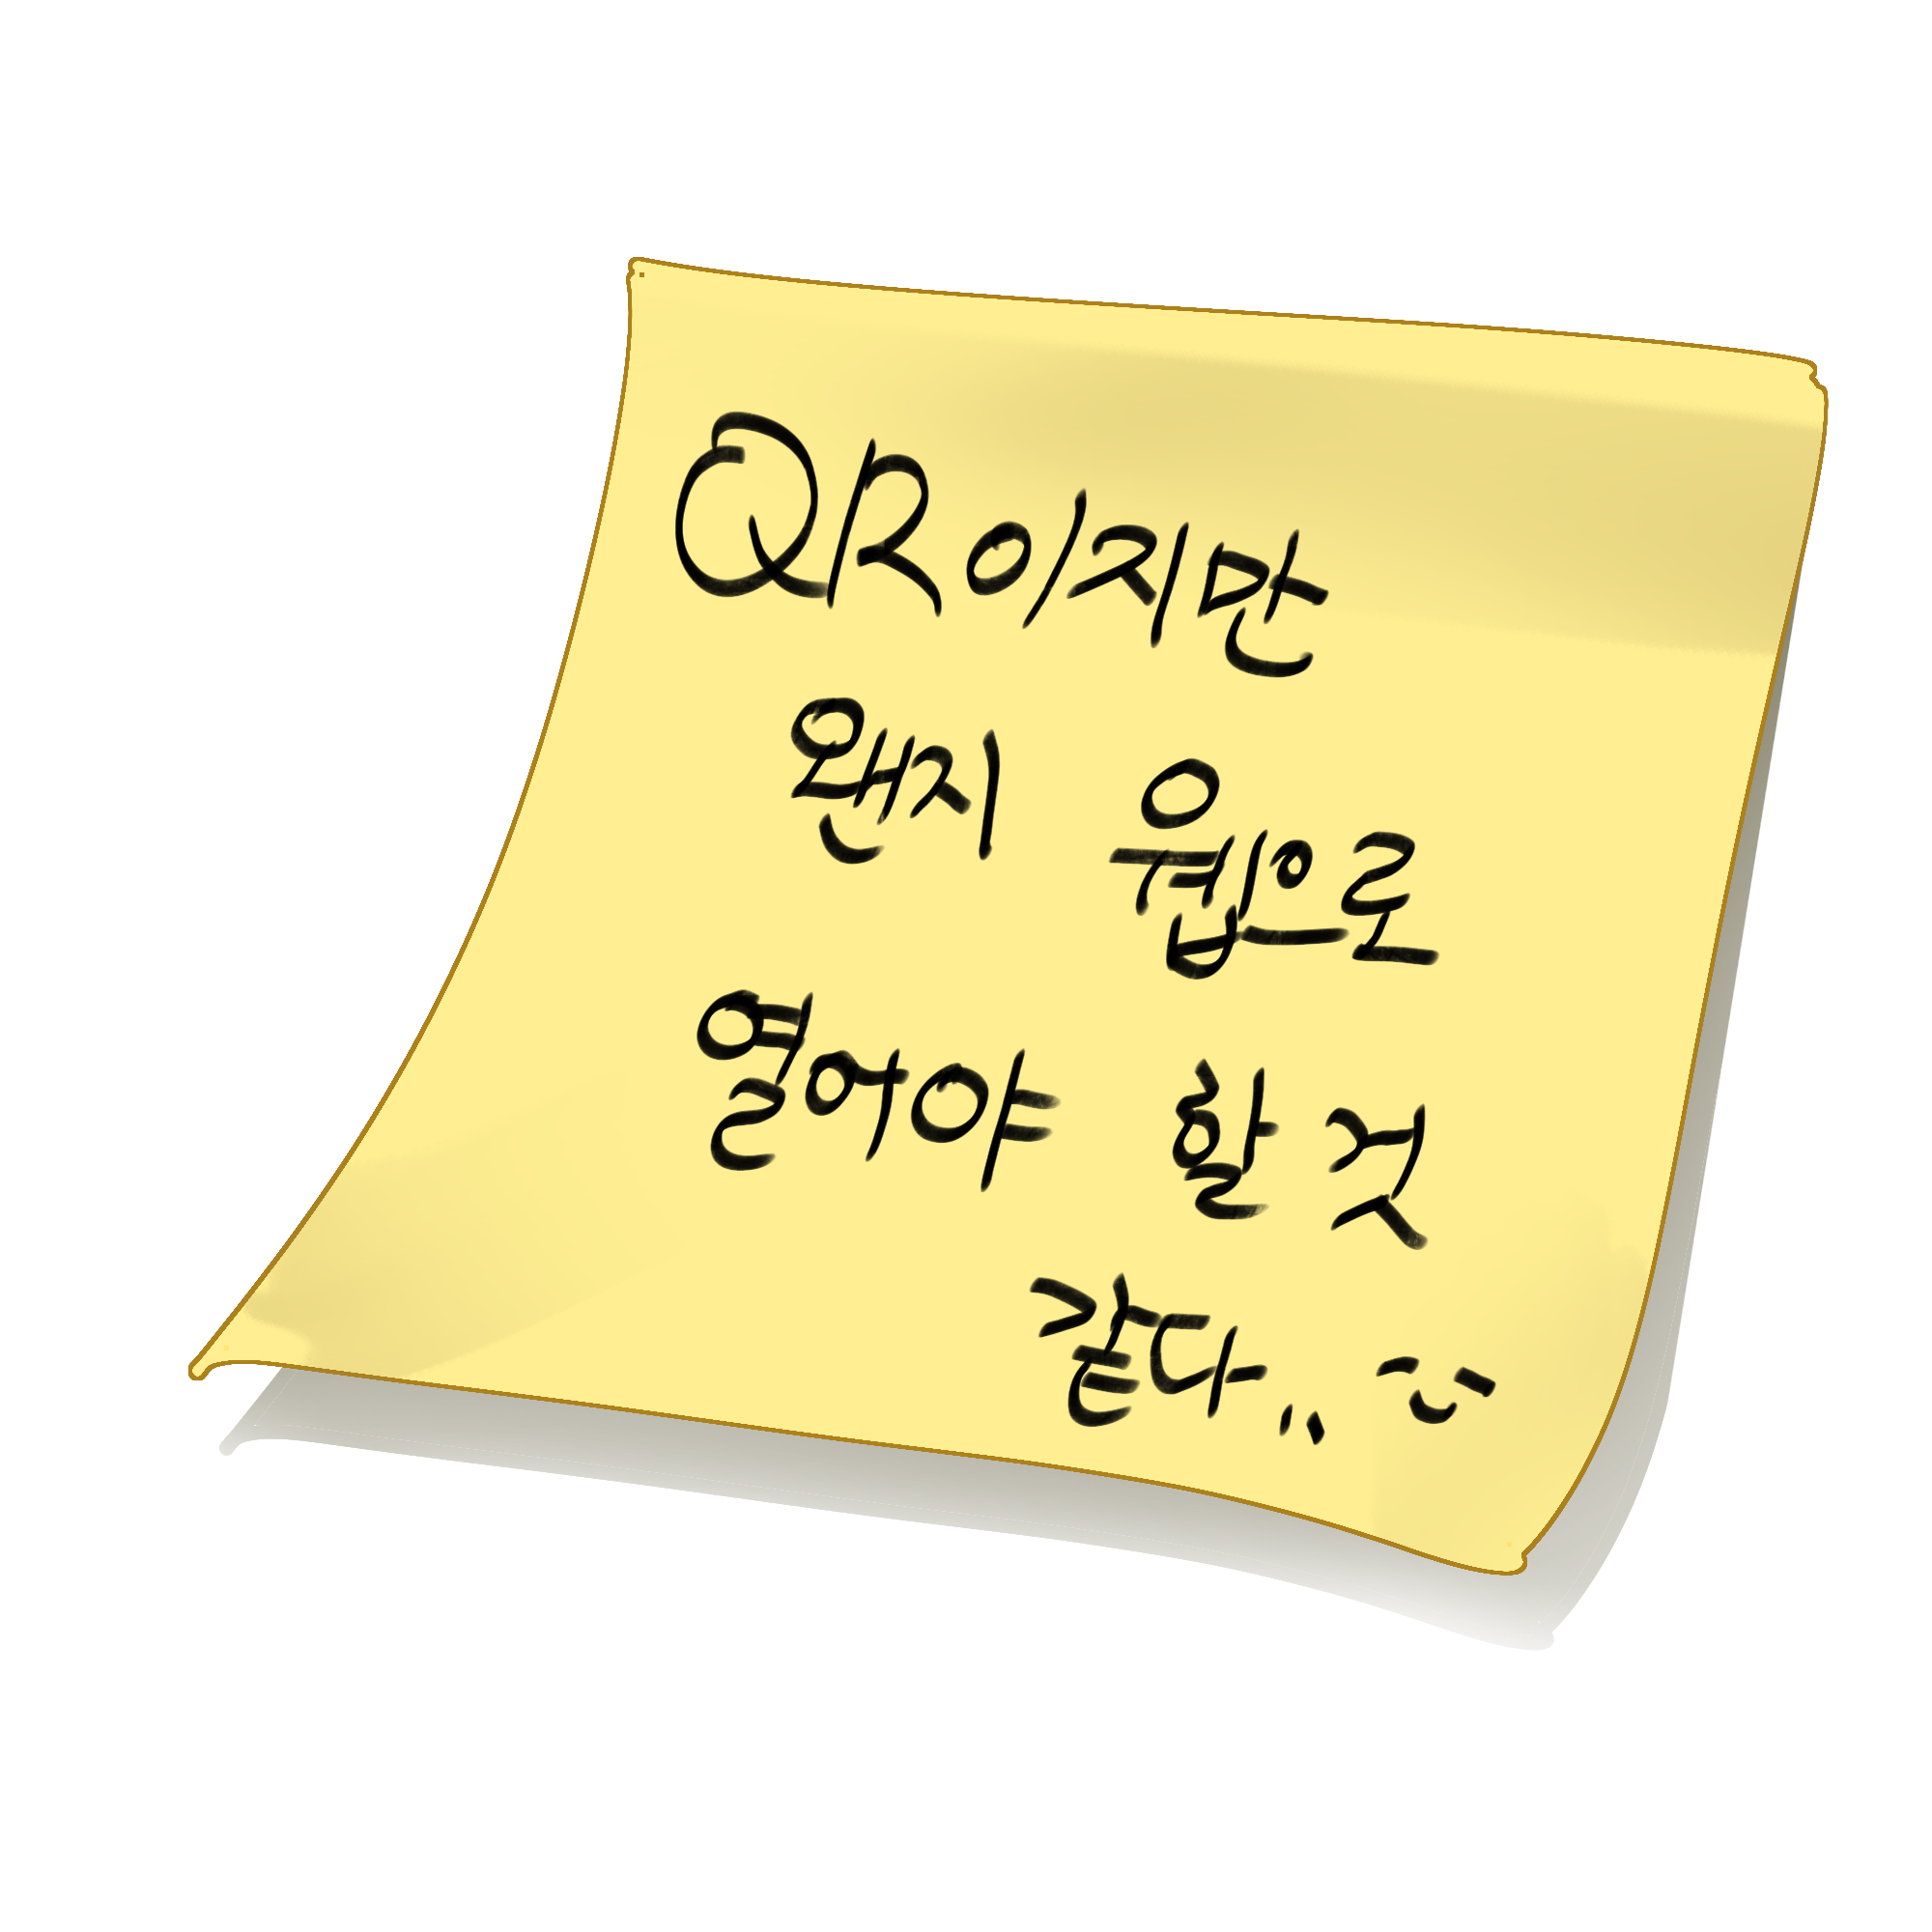 QR이지만
왠지 웹으로
열어야 할 것
같다..